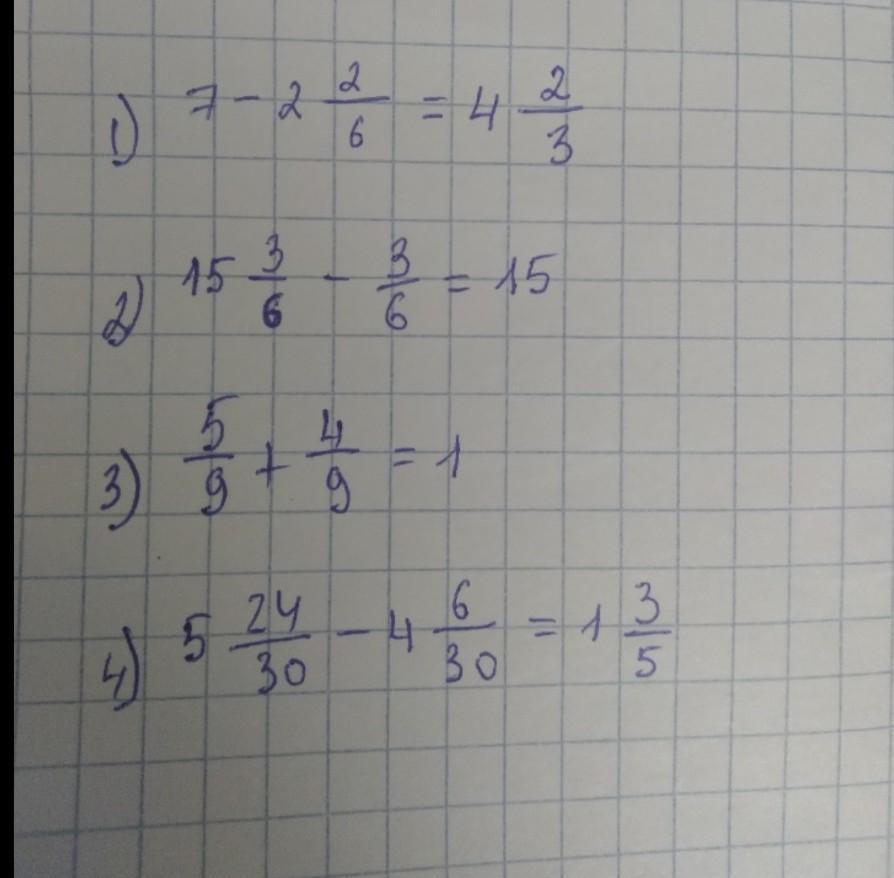 1) 7 - 2 2/6 = 4 2/3
2) 15 3/6 - 3/6 = 15
3) 5/9 + 4/9 = 1
4) 5 24/30 - 4 6/30 = 1 3/5